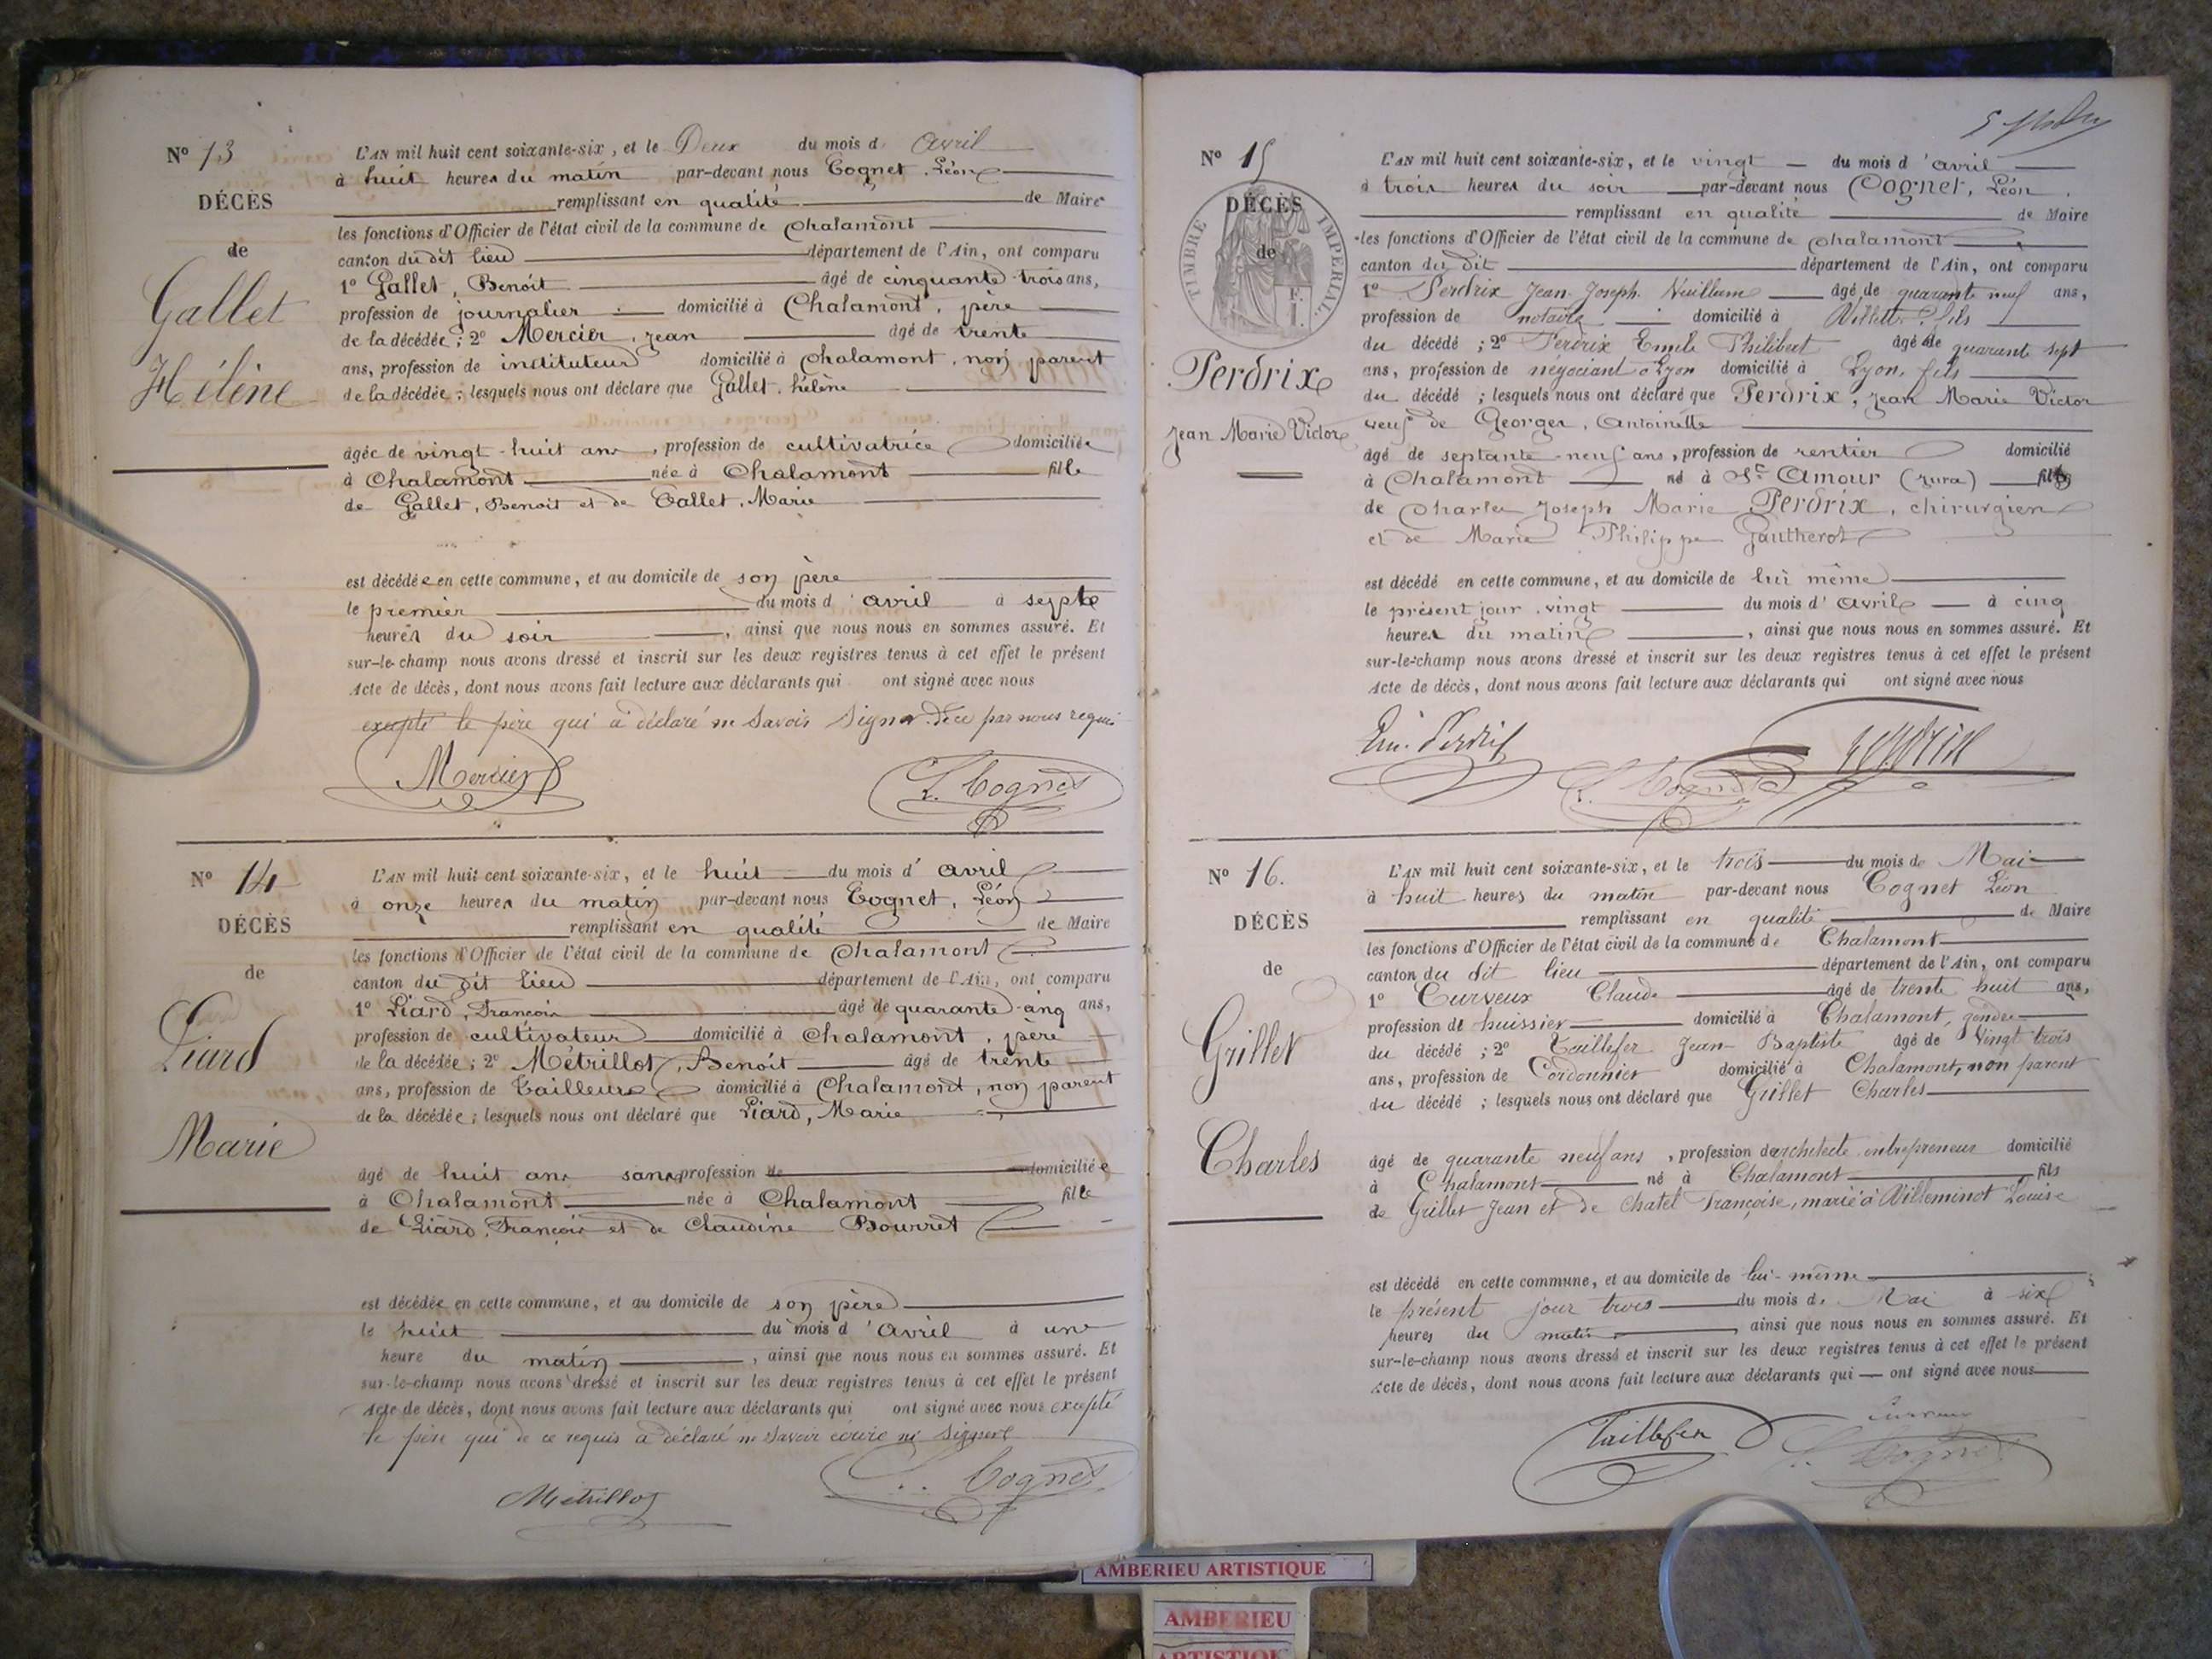 Nº 13
DÉCÈS
de
Gallet
Hélène
L'AN mil huit cent soixante-six, et le Deux du mois d' Avril
à huit heures du matin par-devant nous Cognet, Léon
remplissant en qualité de Maire
les fonctions d'Officier de l'état civil de la commune de Chalamont
canton du dit lieu département de l'Ain, ont comparu
1º Gallet, Benoît âgé de cinquante trois ans,
profession de journalier domicilié à Chalamont, père
de la décédée ; 2º Mercier, jean âgé de trente
ans, profession de instituteur domicilié à Chalamont, non parent
de la décédée ; lesquels nous ont déclaré que Gallet, hélène
âgée de vingt-huit ans, profession de cultivatrice domiciliée
à Chalamont née à Chalamont fille
de Gallet, Benoit et de Tallet, Marie
est décédée en cette commune, et au domicile de son père
le premier du mois d'avril à sept
heures du soir, ainsi que nous nous en sommes assuré. Et
sur-le-champ nous avons dressé et inscrit sur les deux registres tenus à cet effet le présent
Acte de décès, dont nous avons fait lecture aux déclarants qui ont signé avec nous
excepté le père qui a déclaré ne savoir signer de ce par nous requis
Mercier L. Cognet
Nº 14
DÉCÈS
de
Liard
Marie
L'AN mil huit cent soixante-six, et le huit du mois d' avril
à onze heures du matin par-devant nous Cognet, Léon
remplissant en qualité de Maire
les fonctions d'Officier de l'état civil de la commune de Chalamont
canton du dit lieu département de l'Ain, ont comparu
1º Liard, François âgé de quarante-cinq ans,
profession de cultivateur domicilié à Chalamont, père
de la décédée ; 2º Métrillot, Benoît âgé de trente
ans, profession de Tailleur domicilié à Chalamont, non parent
de la décédée ; lesquels nous ont déclaré que Liard, Marie
âgé de huit ans sans profession de domiciliée
à Chalamont née à Chalamont fille
de Liard, François et de Claudine Bourret
est décédée en cette commune, et au domicile de son père
le huit du mois d'avril à une
heure du matin, ainsi que nous nous en sommes assuré. Et
sur-le-champ nous avons dressé et inscrit sur les deux registres tenus à cet effet le présent
Acte de décès, dont nous avons fait lecture aux déclarants qui ont signé avec nous excepté
le père qui de ce requis a déclaré ne savoir écrire ni signer
Métrillot L. Cognet
Nº 15
DÉCÈS
de
TIMBRE IMPÉRIAL
Perdrix
Jean Marie Victor
L'AN mil huit cent soixante-six, et le vingt du mois d'avril
à trois heures du soir par-devant nous Cognet, Léon
remplissant en qualité de Maire
les fonctions d'Officier de l'état civil de la commune de Chalamont
canton du dit département de l'Ain, ont comparu
1º Perdrix Jean Joseph Vuillum âgé de quarante neuf ans,
profession de notaire domicilié à fils
du décédé ; 2º Perdrix Emile Philibert âgé de quarante sept
ans, profession de négociant à Lyon domicilié à Lyon, fils
du décédé ; lesquels nous ont déclaré que Perdrix, jean Marie Victor
veuf de Georges, Antoinette
âgé de septante-neuf ans, profession de rentier domicilié
à Chalamont né à St Amour (jura) fils
de Charles Joseph Marie Perdrix, chirurgien
et de Marie Philippe Gautherot
est décédé en cette commune, et au domicile de lui même
le présent jour, vingt du mois d'Avril à cinq
heures du matin, ainsi que nous nous en sommes assuré. Et
sur-le-champ nous avons dressé et inscrit sur les deux registres tenus à cet effet le présent
Acte de décès, dont nous avons fait lecture aux déclarants qui ont signé avec nous
Em. Perdrix L. Cognet Perdrix
Nº 16.
DÉCÈS
de
Grillet
Charles
L'AN mil huit cent soixante-six, et le trois du mois de Mai
à huit heures du matin par-devant nous Cognet Léon
remplissant en qualité de Maire
les fonctions d'Officier de l'état civil de la commune de Chalamont
canton du dit lieu département de l'Ain, ont comparu
1º Curveux Claude âgé de trente huit ans,
profession de huissier domicilié à Chalamont, gendre
du décédé ; 2º Taillefer Jean-Baptiste âgé de Vingt trois
ans, profession de Cordonnier domicilié à Chalamont, non parent
du décédé ; lesquels nous ont déclaré que Grillet Charles
âgé de quarante neuf ans, profession d'architecte entrepreneur domicilié
à Chalamont né à Chalamont fils
de Grillet Jean et de Chatel Françoise, marié à Villeminot Louise
est décédé en cette commune, et au domicile de lui-même
le présent jour trois du mois de Mai à six
heures du matin, ainsi que nous nous en sommes assuré. Et
sur-le-champ nous avons dressé et inscrit sur les deux registres tenus à cet effet le présent
Acte de décès, dont nous avons fait lecture aux déclarants qui — ont signé avec nous
Taillefer Curveux
L. Cognet
AMBERIEU ARTISTIQUE
AMBERIEU
ARTISTIQUE